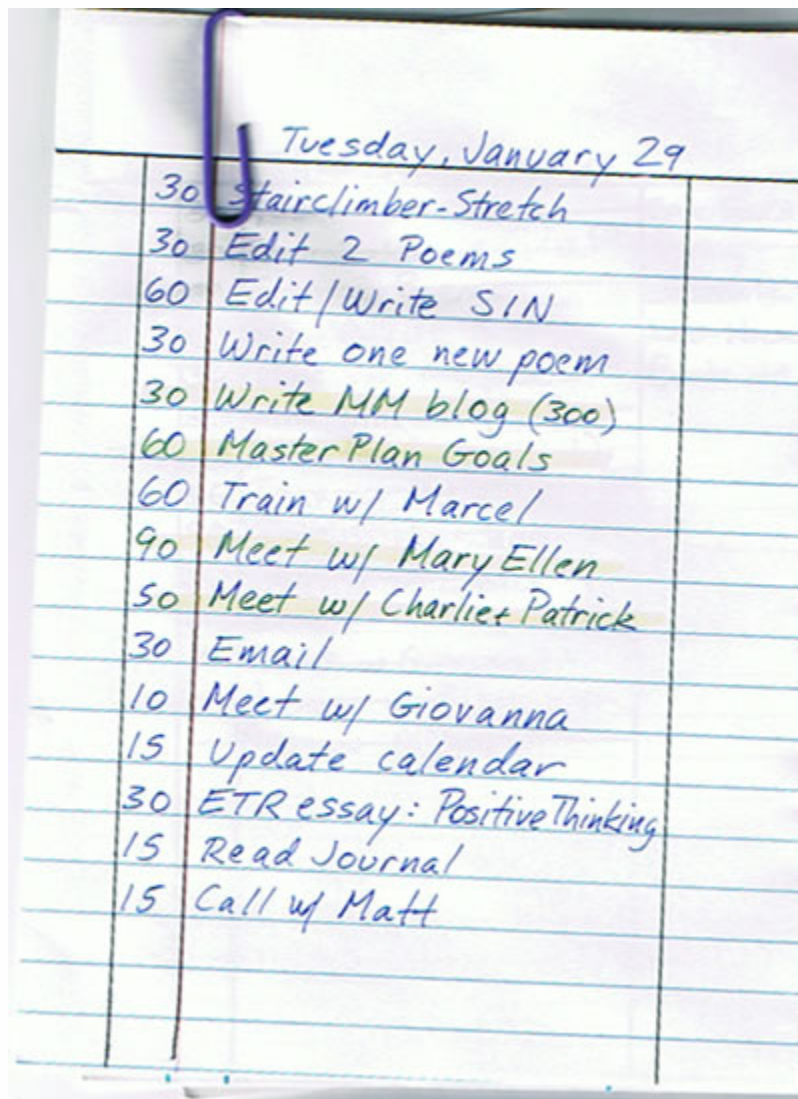 Tuesday, January 29
30 Stairclimber-Stretch
30 Edit 2 Poems
60 Edit/Write SIN
30 Write one new poem
30 Write MM blog (300)
60 Master Plan Goals
60 Train w/ Marcel
90 Meet w/ Mary Ellen
50 Meet w/ Charlie+ Patrick
30 Email
10 Meet w/ Giovanna
15 Update calendar
30 ETR essay: Positive Thinking
15 Read Journal
15 Call w/ Matt